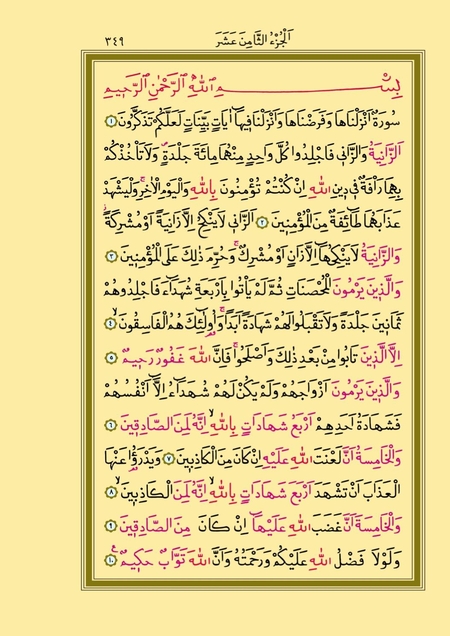 ٣٤٩ اَلْجُزْءُ الثَّامِنَ عَشَرَ
بِسْمِ اللّٰهِ الرَّحْمٰنِ الرَّحٖيمِ
سُورَةٌ اَنْزَلْنَاهَا وَفَرَضْنَاهَا وَاَنْزَلْنَا فٖيهَٓا اٰيَاتٍ بَيِّنَاتٍ لَعَلَّكُمْ تَذَكَّرُونَ ﴿١﴾
اَلزَّانِيَةُ وَالزَّانٖي فَاجْلِدُوا كُلَّ وَاحِدٍ مِنْهُمَا مِائَةَ جَلْدَةٍ وَلَا تَأْخُذْكُمْ
بِهِمَا رَأْفَةٌ فٖي دٖينِ اللّٰهِ اِنْ كُنْتُمْ تُؤْمِنُونَ بِاللّٰهِ وَالْيَوْمِ الْاٰخِرِۚ وَلْيَشْهَدْ
عَذَابَهُمَا طَٓائِفَةٌ مِنَ الْمُؤْمِنٖينَ ﴿٢﴾ اَلزَّانٖي لَا يَنْكِحُ اِلَّا زَانِيَةً اَوْ مُشْرِكَةًؗ
وَالزَّانِيَةُ لَا يَنْكِحُهَٓا اِلَّا زَانٍ اَوْ مُشْرِكٌۚ وَحُرِّمَ ذٰلِكَ عَلَى الْمُؤْمِنٖينَ ﴿٣﴾
وَالَّذٖينَ يَرْمُونَ الْمُحْصَنَاتِ ثُمَّ لَمْ يَأْتُوا بِاَرْبَعَةِ شُهَدَٓاءَ فَاجْلِدُوهُمْ
ثَمَانٖينَ جَلْدَةً وَلَا تَقْبَلُوا لَهُمْ شَهَادَةً اَبَدًاۚ وَاُو۬لٰٓئِكَ هُمُ الْفَاسِقُونَۙ ﴿٤﴾
اِلَّا الَّذٖينَ تَابُوا مِنْ بَعْدِ ذٰلِكَ وَاَصْلَحُواۚ فَاِنَّ اللّٰهَ غَفُورٌ رَحٖيمٌ ﴿٥﴾
وَالَّذٖينَ يَرْمُونَ اَزْوَاجَهُمْ وَلَمْ يَكُنْ لَهُمْ شُهَدَٓاءُ اِلَّٓا اَنْفُسُهُمْ
فَشَهَادَةُ اَحَدِهِمْ اَرْبَعُ شَهَادَاتٍ بِاللّٰهِۙ اِنَّهُ لَمِنَ الصَّادِقٖينَ ﴿٦﴾
وَالْخَامِسَةُ اَنَّ لَعْنَتَ اللّٰهِ عَلَيْهِ اِنْ كَانَ مِنَ الْكَاذِبٖينَ ﴿٧﴾ وَيَدْرَؤُ۬ا عَنْهَا
الْعَذَابَ اَنْ تَشْهَدَ اَرْبَعَ شَهَادَاتٍ بِاللّٰهِۙ اِنَّهُ لَمِنَ الْكَاذِبٖينَۙ ﴿٨﴾
وَالْخَامِسَةَ اَنَّ غَضَبَ اللّٰهِ عَلَيْهَٓا اِنْ كَانَ مِنَ الصَّادِقٖينَ ﴿٩﴾
وَلَوْلَا فَضْلُ اللّٰهِ عَلَيْكُمْ وَرَحْمَتُهُ وَاَنَّ اللّٰهَ تَوَّابٌ حَكٖيمٌ۟ ﴿١٠﴾